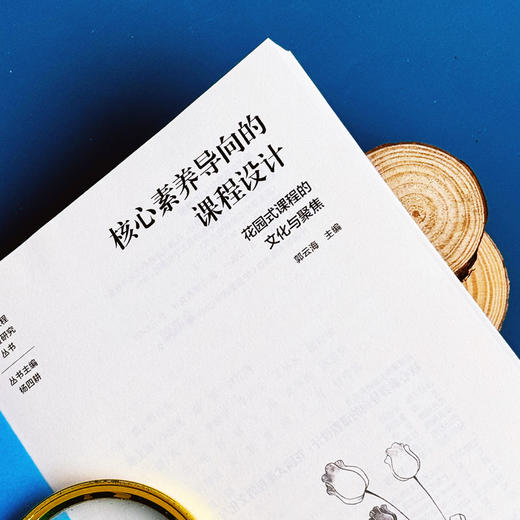 核心素养导向的
课程设计
花园式课程的
文化与聚焦
郭云海 主编
程
研究
丛书
丛书主编
杨四耕